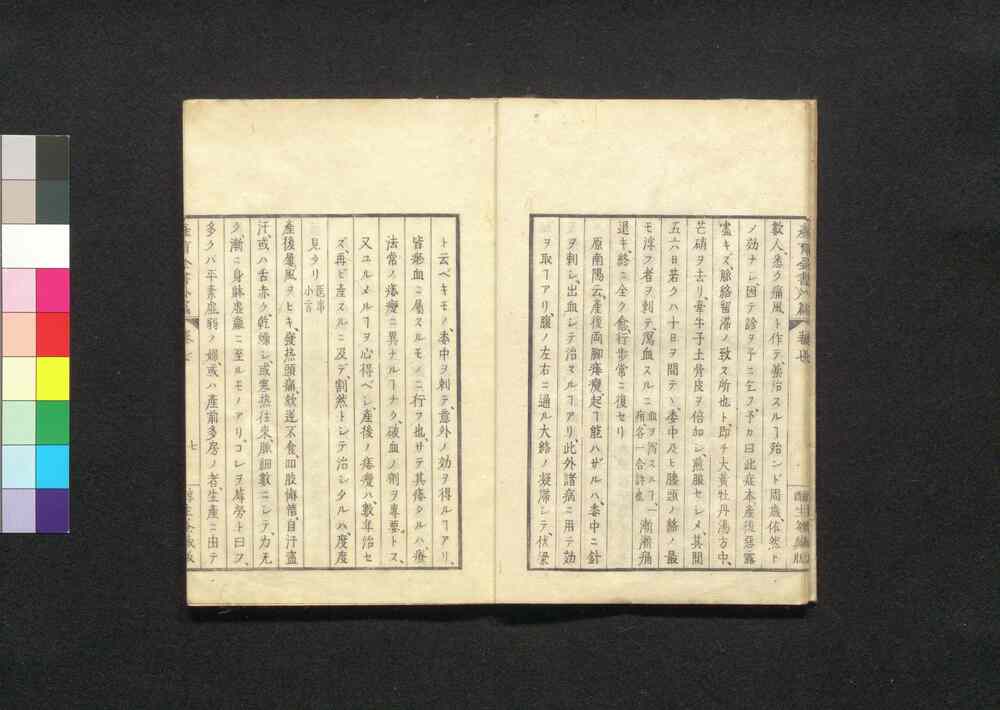 産育全書外編　卷七
數人、悉ク痛風ト作テ、藥治スルヿ殆ンド周歳、依然ト
ノ効ナシ、因テ診ヲ予ニ乞フ、予カ曰此症本産後惡露
盡キズ、脉絡留滞ノ致ス所也ト、即チ大黄牡丹湯方中、
芒硝ヲ去リ、牽牛子土骨皮ヲ倍加シ、煎服セシメ、其間
五六日若クハ十日ヲ間テヽ、委中及ヒ膝頭ノ絡ノ最
モ浮フ者ヲ刺テ、瀉血スルニ血ヲ瀉スルヿ一所各一合許也漸漸痛
退キ、終ニ全ク愈、行歩常ニ復セリ
原南陽云、産後両脚痿躄、起ツ能ハザルハ、委中ニ針
ヲ刺シ、出血シテ治スルヿアリ、此外諸病ニ用テ効
ヲ取ヿアリ、腹ノ左右ニ通ル大絡ノ凝滞シテ、伏梁
ト云ベキモノ、委中ヲ刺テ、意外ノ効ヲ得ルヿアリ、
皆瘀血ニ屬スルモノニ行フ也、サテ其痿タルハ、療
法常ノ痿躄ニ異ナルヿナク、破血ノ劑ヲ專要トス、
又ユルメルヿヲ心得ベシ、産後ノ痿躄ハ、數年治セ
ズ、再ビ産スルニ及デ、割然トシテ治シタルハ、度度
見タリ医事小言
産後風ヲヒキ、發熱頭痛、欬逆不食、四肢懈惰、自汗盗
汗、或ハ舌赤ク、乾燥シ、或寒熱往来、脈細數ニシテ、力无
ク、漸ニ身躰虚羸ニ至ルモノアリ、コレヲ蓐勞ト曰フ、
多クハ平素虚弱ノ婦、或ハ産前多房ノ者、生産ニ由テ
七